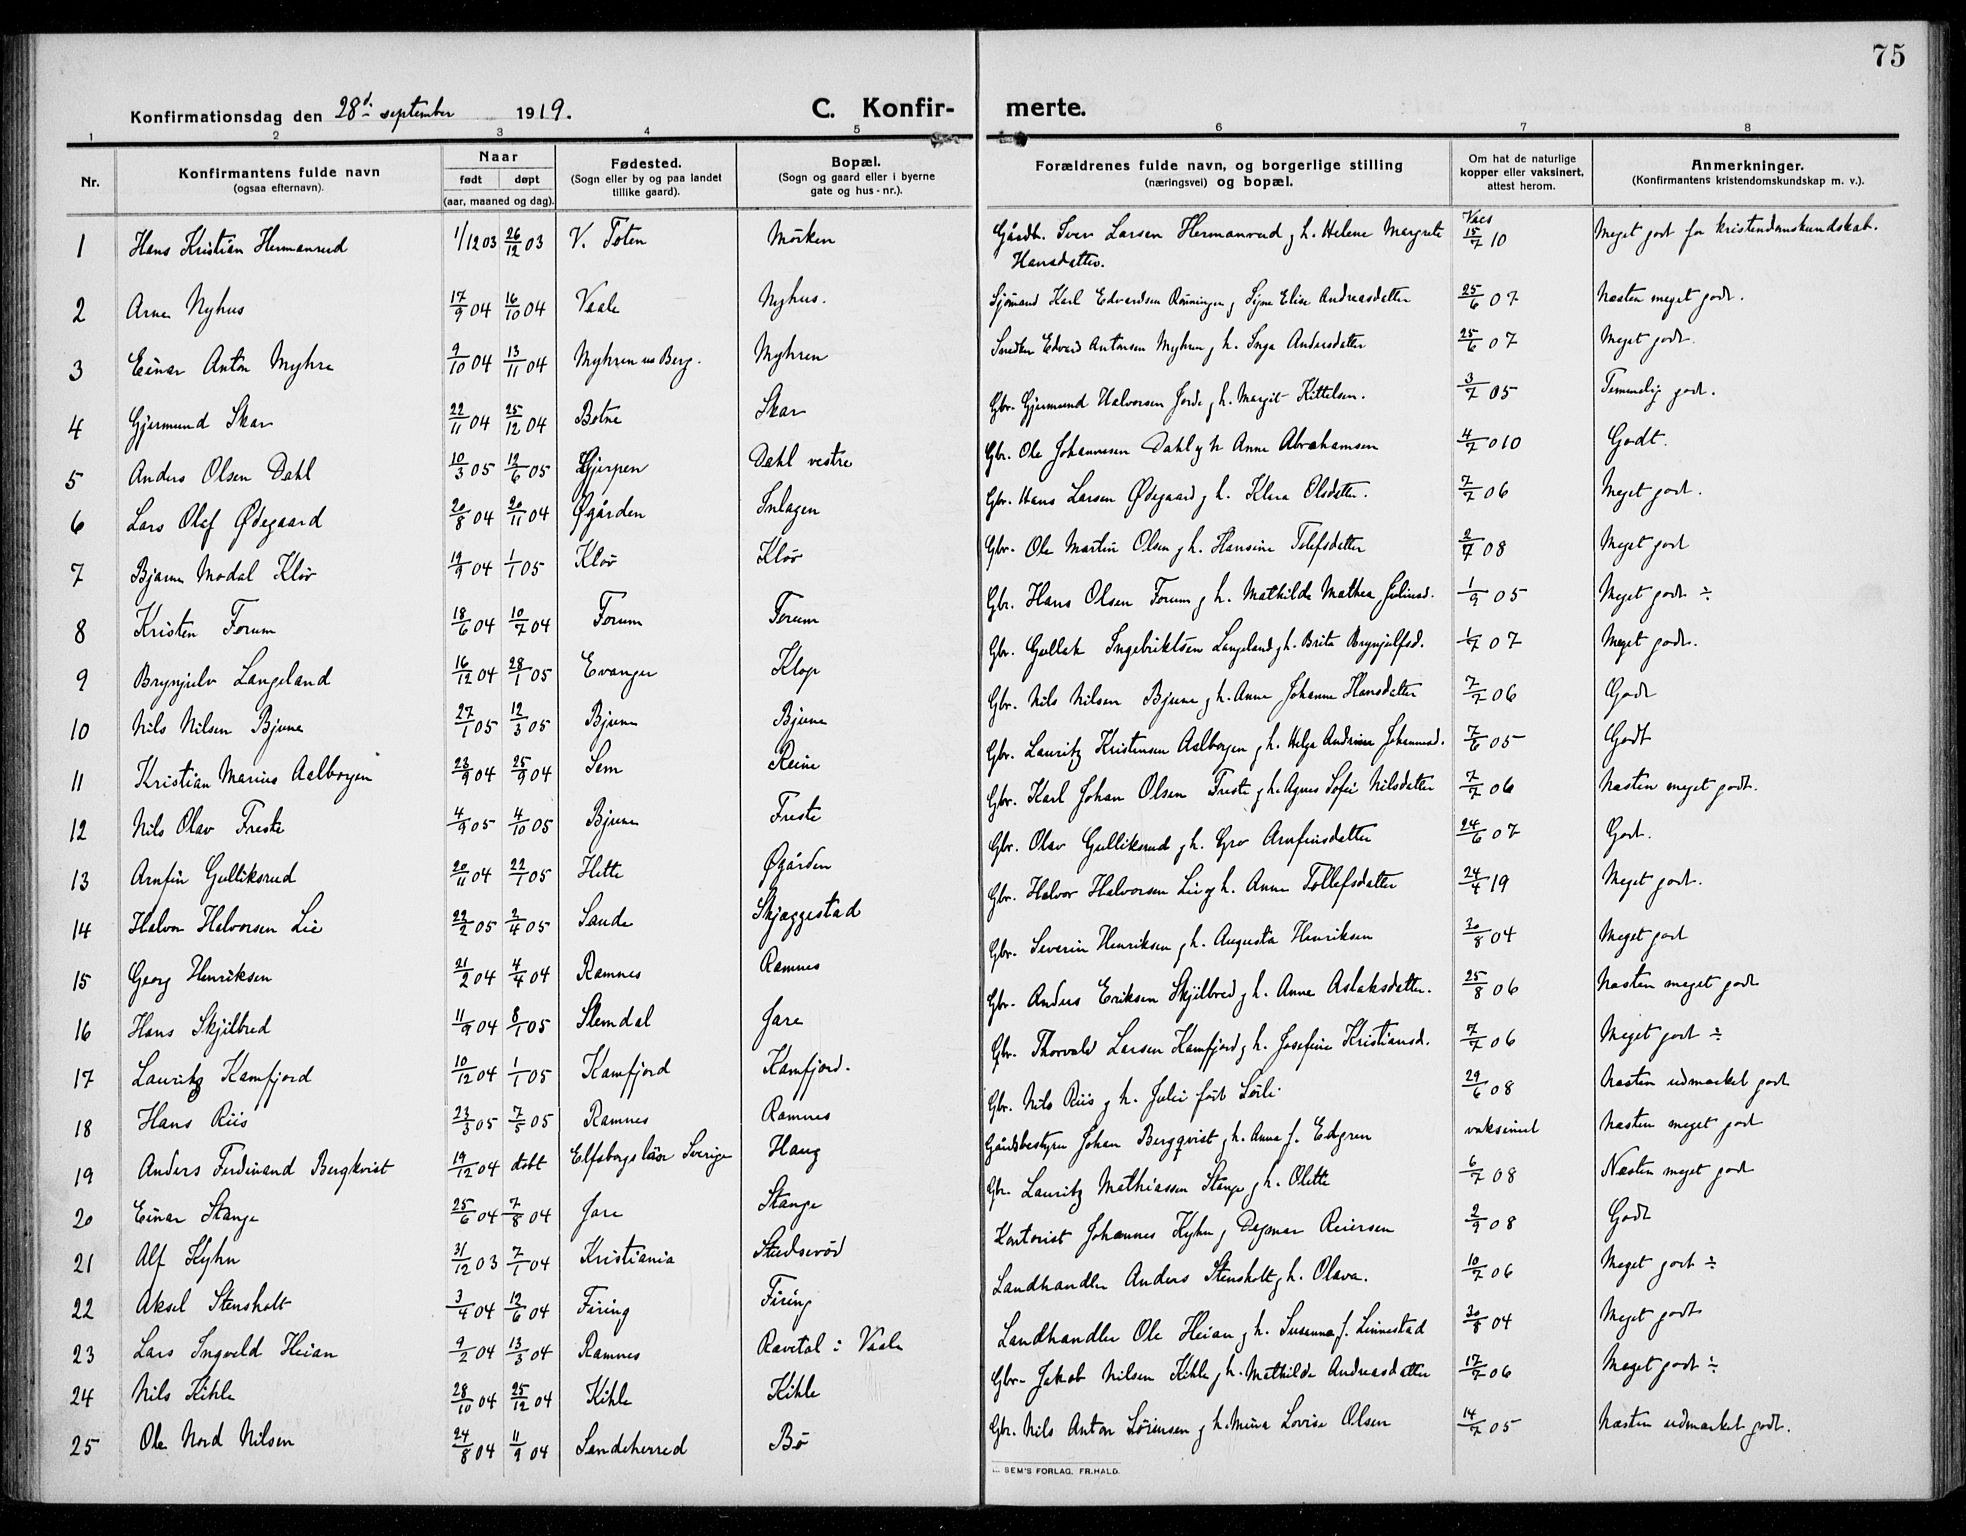 75
Konfirmationsdag den 28d. september 1919. C. Konfir- merte.
1 2 3 4 5 6 7 8
Nr. Konfirmantens fulde navn (ogsaa efternavn). Naar født døpt (aar, maaned og dag). Fødested. (Sogn eller by og paa landet tillike gaard). Bopæl. (Sogn og gaard eller i byerne gate og hus-nr.). Forældrenes fulde navn, og borgerlige stilling (næringsvei) og bopæl. Om hat de naturlige kopper eller vaksinert, attest herom. Anmerkninger. (Konfirmantens kristendomskundskap m. v.).
1 Hans Kristian Hermanrud 1/12 03 26/12 03 V. Toten Mörken Gårdb. Iver Larsen Hermanrud g h. Helene Margrete Vacs 15/7 10 Meget godt for kristendomskundskab.
Hansdatter.
2 Arne Nyhus 17/9 04 16/10 04 Vaale Nyhus. Sjömand Karl Edvardsen Rönningen g Signe Elise Andreasdatter 25/6 07 Næsten meget godt.
3 Einar Anton Myhre 9/10 04 13/11 04 Myhren us Berg. Myhren Snedker Edvard Antonsen Myhren g h. Inga Andersdatter 25/6 07 Meget godt.
4 Gjermund Skar 22/11 04 25/12 04 Botne Skar Gbr. Gjermund Halvorsen Jorde g h. Margit Kittelsen. 3/7 05 Temmelig godt.
5 Anders Olsen Dahl 10/3 05 12/6 05 Gjerpen Dahl vestre Gbr. Ole Johannesen Dahl g h Anne Abrahamsen 4/7 010 Godt.
6 Lars Olaf Ødegaard 20/8 04 20/11 04 Øgården Inlagen Gbr. Hans Larsen Ødegaard g h. Klara Olsdatter. 7/7 06 Meget godt.
7 Bjarne Modal Klør 19/9 04 1/1 05 Klør Klør Gbr. Ole Martin Olsen g h. Hansine Tolefsdatter 2/7 08 Meget godt
8 Kristen Forum 18/6 04 10/7 04 Forum Forum Gbr. Hans Olsen Forum g h. Mathilde Mathea Juliusd. 1/9 05 Meget godt ÷
9 Brynjulv Langeland 16/12 04 28/1 05 Evanger Klop Gbr. Gullak Ingebriktsen Langeland g h. Brita Brynjulfsd. 1/7 07 Meget godt.
10 Nils Nilsen Bjune 27/1 05 12/3 05 Bjune Bjune Gbr. Nils Nilsen Bjune g h. Anne Johanne Hansdatter 7/7 06 Godt
11 Kristian Marius Aalborgen 23/9 04 25/9 04 Sem Reine Gbr. Lauritz Kristensen Aalborgen g h. Helga Andrine Johannesd. 7/6 05 Godt
12 Nils Olav Freste 4/9 05 4/10 05 Bjune Freste Gbr. Karl Johan Olsen Freste g h. Agnes Sofie Nilsdatter 7/7 06 Næsten meget godt.
13 Arnfin Gulliksrud 20/11 04 22/1 05 Hitte Øgården Gbr. Olav Gulliksrud g h. Gro Arnfinsdatter 24/6 07 Godt.
14 Halvor Halvorsen Lie 22/2 05 2/4 05 Sande Skjaggestad Gbr. Halvor Halvorsen Lie g h. Anne Tollefsdatter 24/4 19 Meget godt.
15 Georg Henriksen 21/2 04 4/4 04 Ramnes Ramnes Gbr. Severin Henriksen g h. Augusta Henriksen 30/8 04 Meget godt
16 Hans Skjilbred 11/9 04 8/1 05 Slemdal Jare Gbr. Anders Eriksen Skjilbred g h. Anne Aslaksdatter. 25/8 06 Næsten meget godt
17 Lauritz Kamfjord 10/12 04 1/1 05 Kamfjord Kamfjord. Gbr. Thorvald Larsen Kamfjord g h. Josefine Kristiansd. 7/7 06 Meget godt ÷
18 Hans Riis 23/3 05 7/5 05 Ramnes Ramnes Gbr. Nils Riis g h. Julie föd Sörli 29/6 08 Næsten udmærket godt
19 Anders Ferdinand Bergkvist 19/12 04 döbt Elfsborgs län Sverige Haug Gårdsbestyrer Johan Bergqvist g h. Anna f. Edgren vaksinert Næsten meget godt
20 Einar Stange 25/6 04 7/8 04 Jare Stange Gbr. Lauritz Mathiassen Stange g h. Olette 6/7 08 Næsten meget godt
21 Alf Kyhn 31/12 03 7/1 04 Kristiania Studsrød Kontorist Johannes Kyhn g Dagmar Reiersen 2/9 08 Godt
22 Aksel Stensholt 3/4 04 12/6 04 Firing Firing Landhandler Anders Stensholt g h. Olava. 10/7 06 Meget godt ÷
23 Lars Ingvald Heian 9/2 04 13/3 04 Ramnes Ravital i Vaale Landhandler Ole Heian g h. Susanna f. Linnestad 30/8 04 Meget godt
24 Nils Kihle 28/10 04 25/12 04 Kihle Kihle Gbr. Jakob Nilsen Kihle g h. Mathilde Andreasdatter 17/7 06 Meget godt ÷
25 Ole Nord Nilsen 24/8 04 11/9 04 Sandeherred Bö Gbr. Nils Anton Sörensen g h. Mina Lovise Olsen 14/7 05 Næsten udmærket godt.
SEM'S FORLAG, FR.HALD.